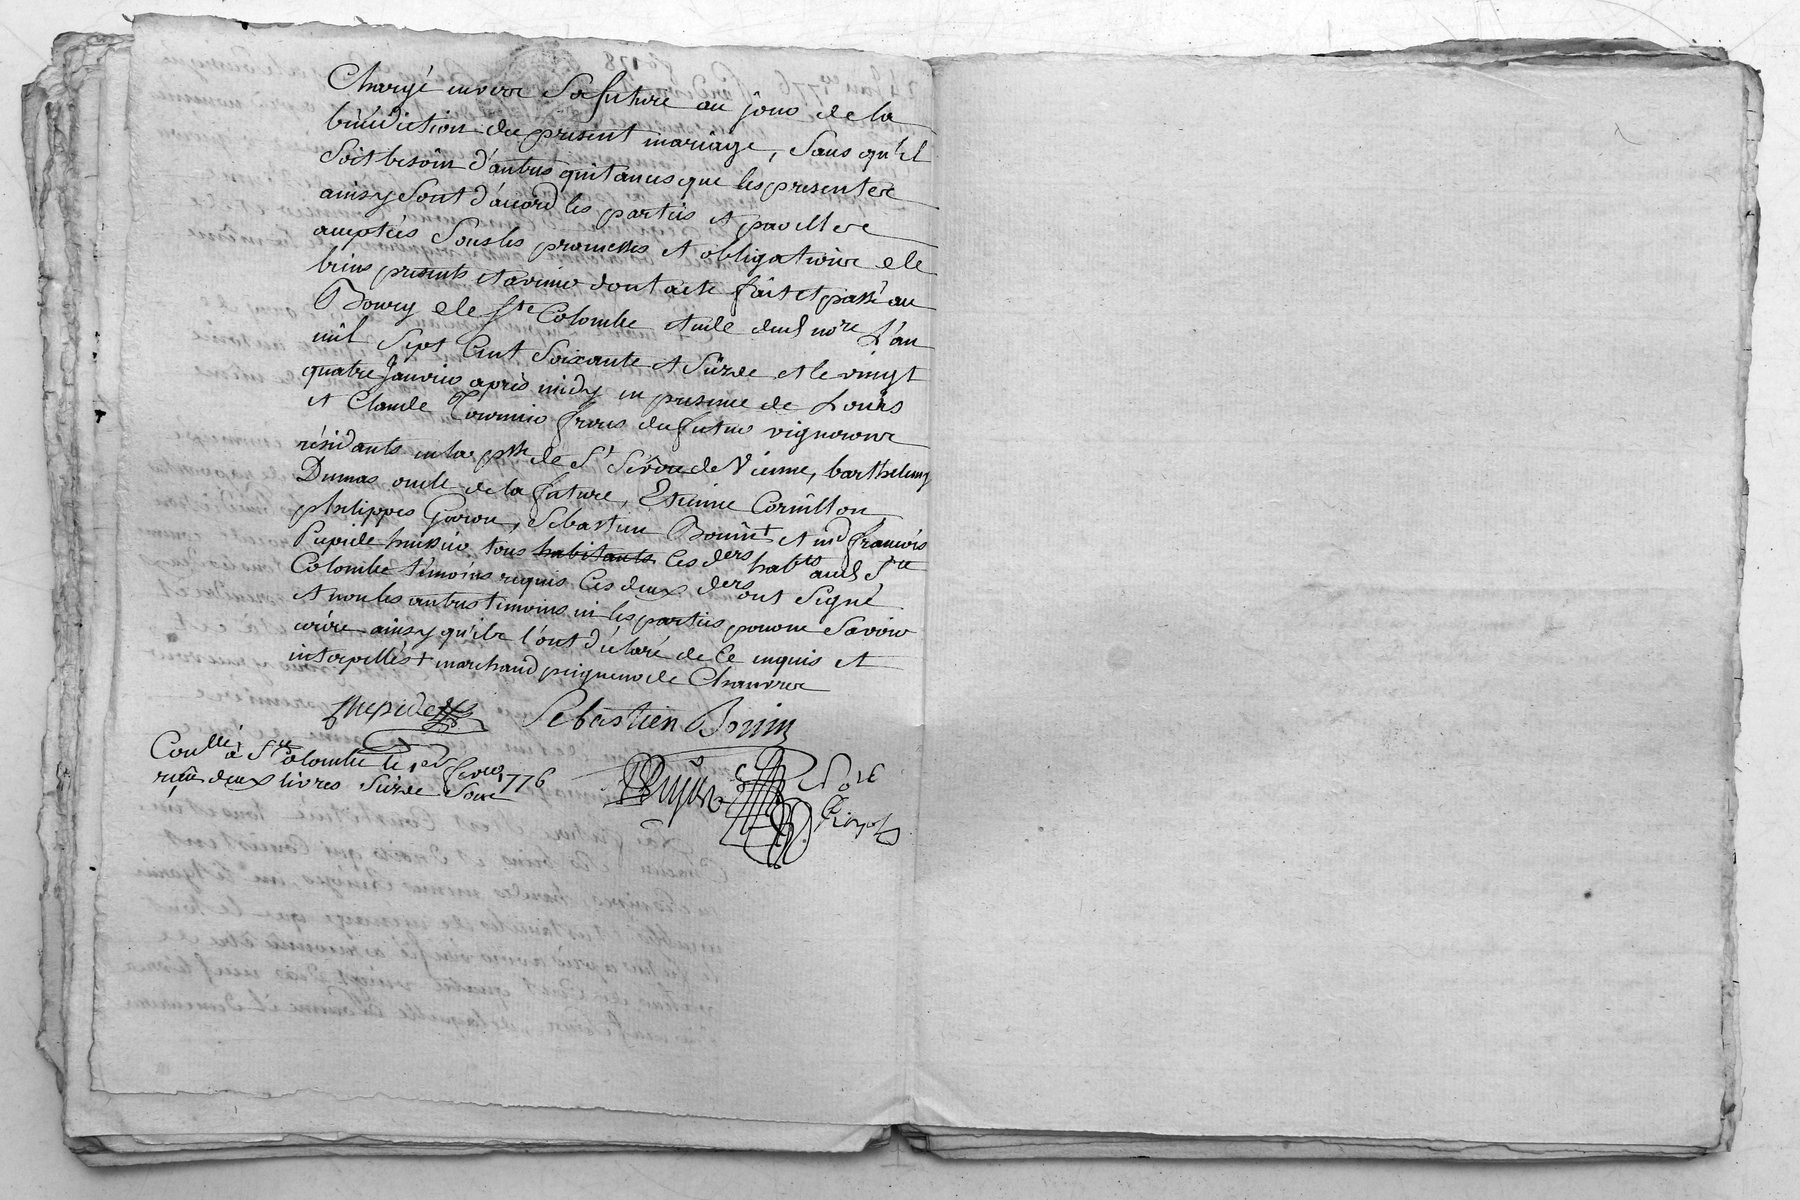 Chargé envers Sa future au jour de la
bénédiction du present mariage, Sans qu'il
Soit besoin d'autres quitances que les presentes
ainsy Sont d'acord les parties et par elles
acceptées Sous les promesses et obligations de
biens presents et avenir dont acte fait et passé au
Bourg de Ste Colombe etude dud nore L'an
mil Sept Cent Soixante et Seize et le vingt
quatre Janvier après midy en presence de Louis
et Claude Tournier freres du futur vignerons
résidants en la psse de St Sévère de Vienne, barthelemy
Dumas oncle de la future, Etienne Cornillon
philippes Garon, Sebastien Bonin+ et md françois
Pupide huissier tous habitants Ces ders habts aud Ste
Colombe témoins requis Ces deux ders ont Signé
et non les autres temoins ni les parties pour ne Savoir
écrire ainsy qu'ils l'ont déclaré de Ce enquis et
interpellés + marchand peigneur de Chanvre
Sebastien Bonin
Conllé à Ste Colombe le 1er fevrier 1776
reçu deux livres Seize Sous